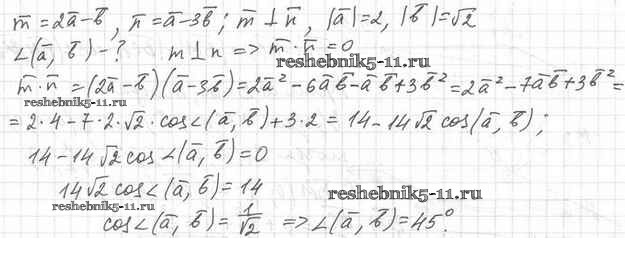 m̅ = 2a̅ - b̅, n̅ = a̅ - 3b̅; m̅ ⊥ n̅, |a̅| = 2, |b̅| = √2
∠(a̅, b̅) - ? m ⊥ n => m̅ · n̅ = 0
reshebnik5-11.ru
m̅ · n̅ = (2a̅ - b̅)(a̅ - 3b̅) = 2a̅² - 6a̅b̅ - a̅b̅ + 3b̅² = 2a̅² - 7a̅b̅ + 3b̅² =
reshebnik5-11.ru
= 2·4 - 7·2·√2·cos∠(a̅, b̅) + 3·2 = 14 - 14√2 cos(a̅, b̅);
14 - 14√2 cos∠(a̅, b̅) = 0
14√2 cos∠(a̅, b̅) = 14
reshebnik5-11.ru
reshebnik5-11.ru
cos∠(a̅, b̅) = 1/√2 => ∠(a̅, b̅) = 45°.